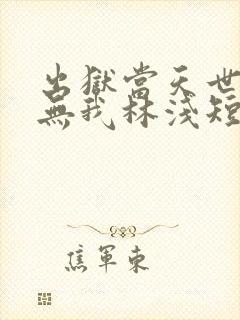 出獄當天世
無我林淺短
焦軍東